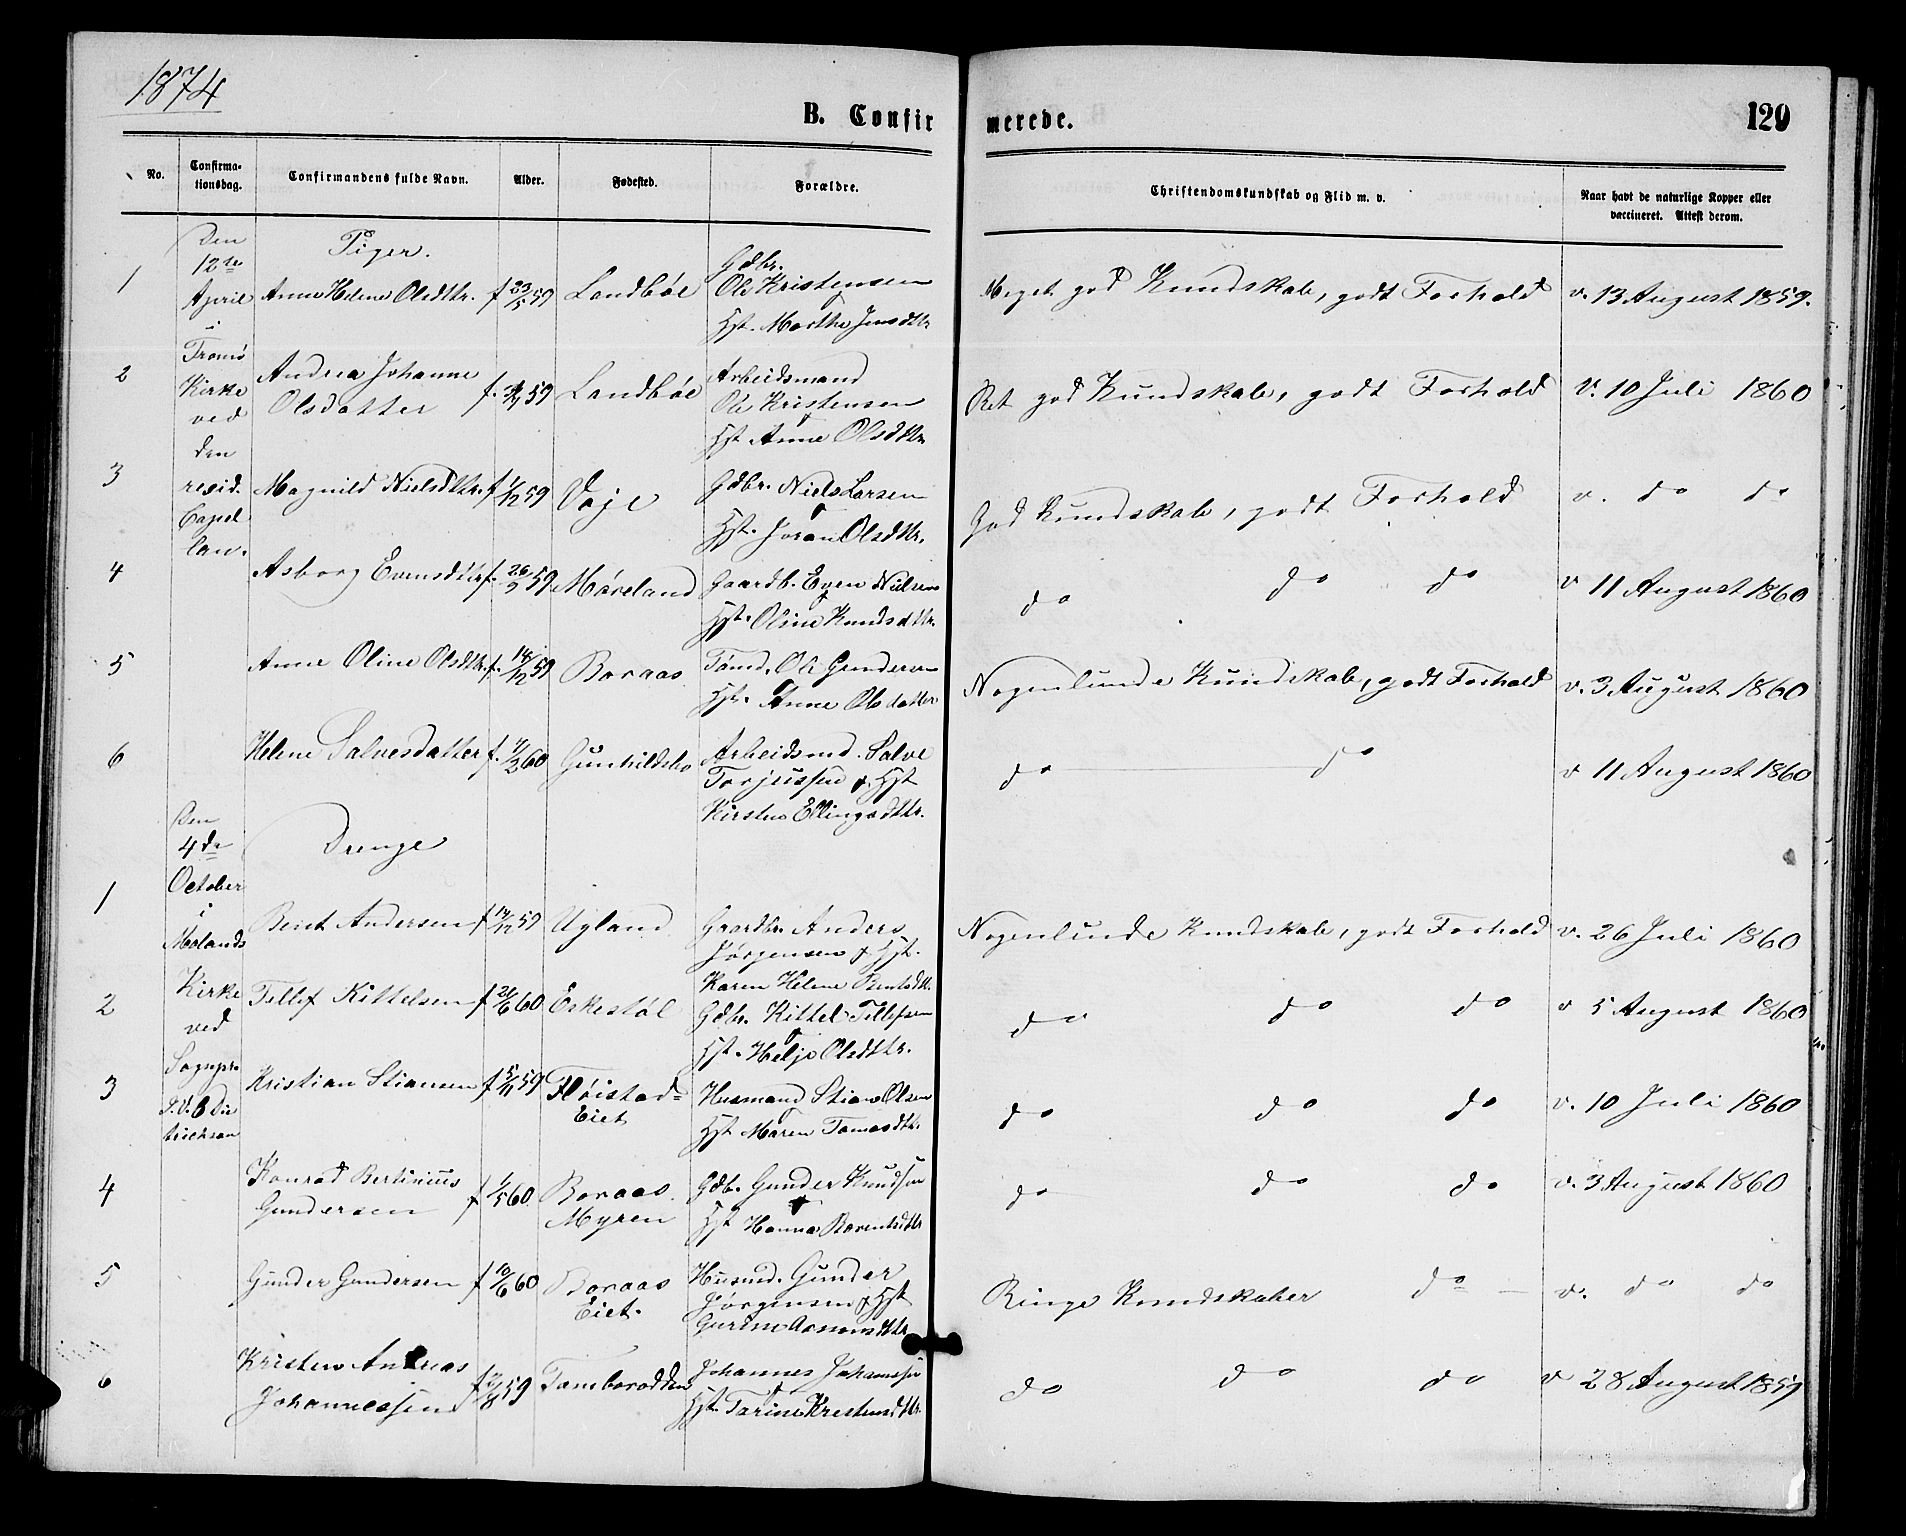 1874
B. Confirmerede.
120
No.
Confirmationsdag.
Confirmandens fulde Navn.
Alder.
Fødested.
Forældre.
Christendomskundskab og Flid m. v.
Naar havt de naturlige Kopper eller vaccineret. Attest derom.
Den 12te April i Tromø Kirke ved den resid. Capellan.
Piger.
1 Anne Helene Olsdttr. f 23/5 59 Landbøe Gdbr. Ole Kristensen Hst. Marthe Jensdttr Meget god Kundskab, godt Forhold v. 13 August 1859.
2 Andrea Johanne Olsdatter f. 59 Landbøe Arbeidsmand Ole Kristensen Hst Anne Olsdttr Ret god Kundskab, godt Forhold v. 10 Juli 1860
3 Magnild Nielsdttr f 1/12 59 Voje Gdbr. Niels Larsen Hst. Joran Olsdttr. God Kundskab, godt Forhold v. do do
4 Asborg Evensdttr f. 26/2 59 Møreland Gaardb. Even Nielsen Hst. Oline Knudsdttr. do do do v 11 August 1860
5 Anne Oline Olsdttr. f. 14/12 59 Boraas Tømd. Ole Gundersen Hst. Anne Olsdatter Nogenlunde Kundskab, godt Forhold v. 3 August 1860
6 Helene Salvesdatter f. 4/2 60 Gunhildsbo Arbeidsmd. Salve Torjussen & Hst Kirsten Ellingsdttr. do do v 11 August 1860
Den 4de October i Molands Kirke ved Sognepr. P. V. B Dietrichson
Drenge
1 Beint Andersen f 14/12 59 Ugland Gaardbr. Anders Jørgensen & Hst. Karen Helene Bentsdtt. Nogenlunde Kundskab, godt Forhold v. 26 Juli 1860
2 Tellef Kittelsen f 21/6 60 Eskestøl Gdbr. Kittel Tellefsen Hst. Helje Olsdttr. do do do v 5 August 1860
3 Kristian Stiansen f 5/11 59 Fløistad= Eiet Husmand Stian Olsen Hst Maren Tomasdttr. do do do v. 10 Juli 1860
4 Konrad Bertinius Gundersen f 1/5 60 Boraas Myren Gdb. Gunder Knudsen Hst Hanna Barentsdttr do do do v. 3 August 1860
5 Gunder Gundersen f 10/6 60 Boraas Eiet. Husmd. Gunder Jørgensen & Hst Gurine Aasmundsdttr Ringe Kundskaber do v. do do
6 Kristen Andreas Johannessen f 2/8 59 Tamborodden Johannes Johannesen Hst. Tarine Kristensdttr. do do do v 28 August 1859